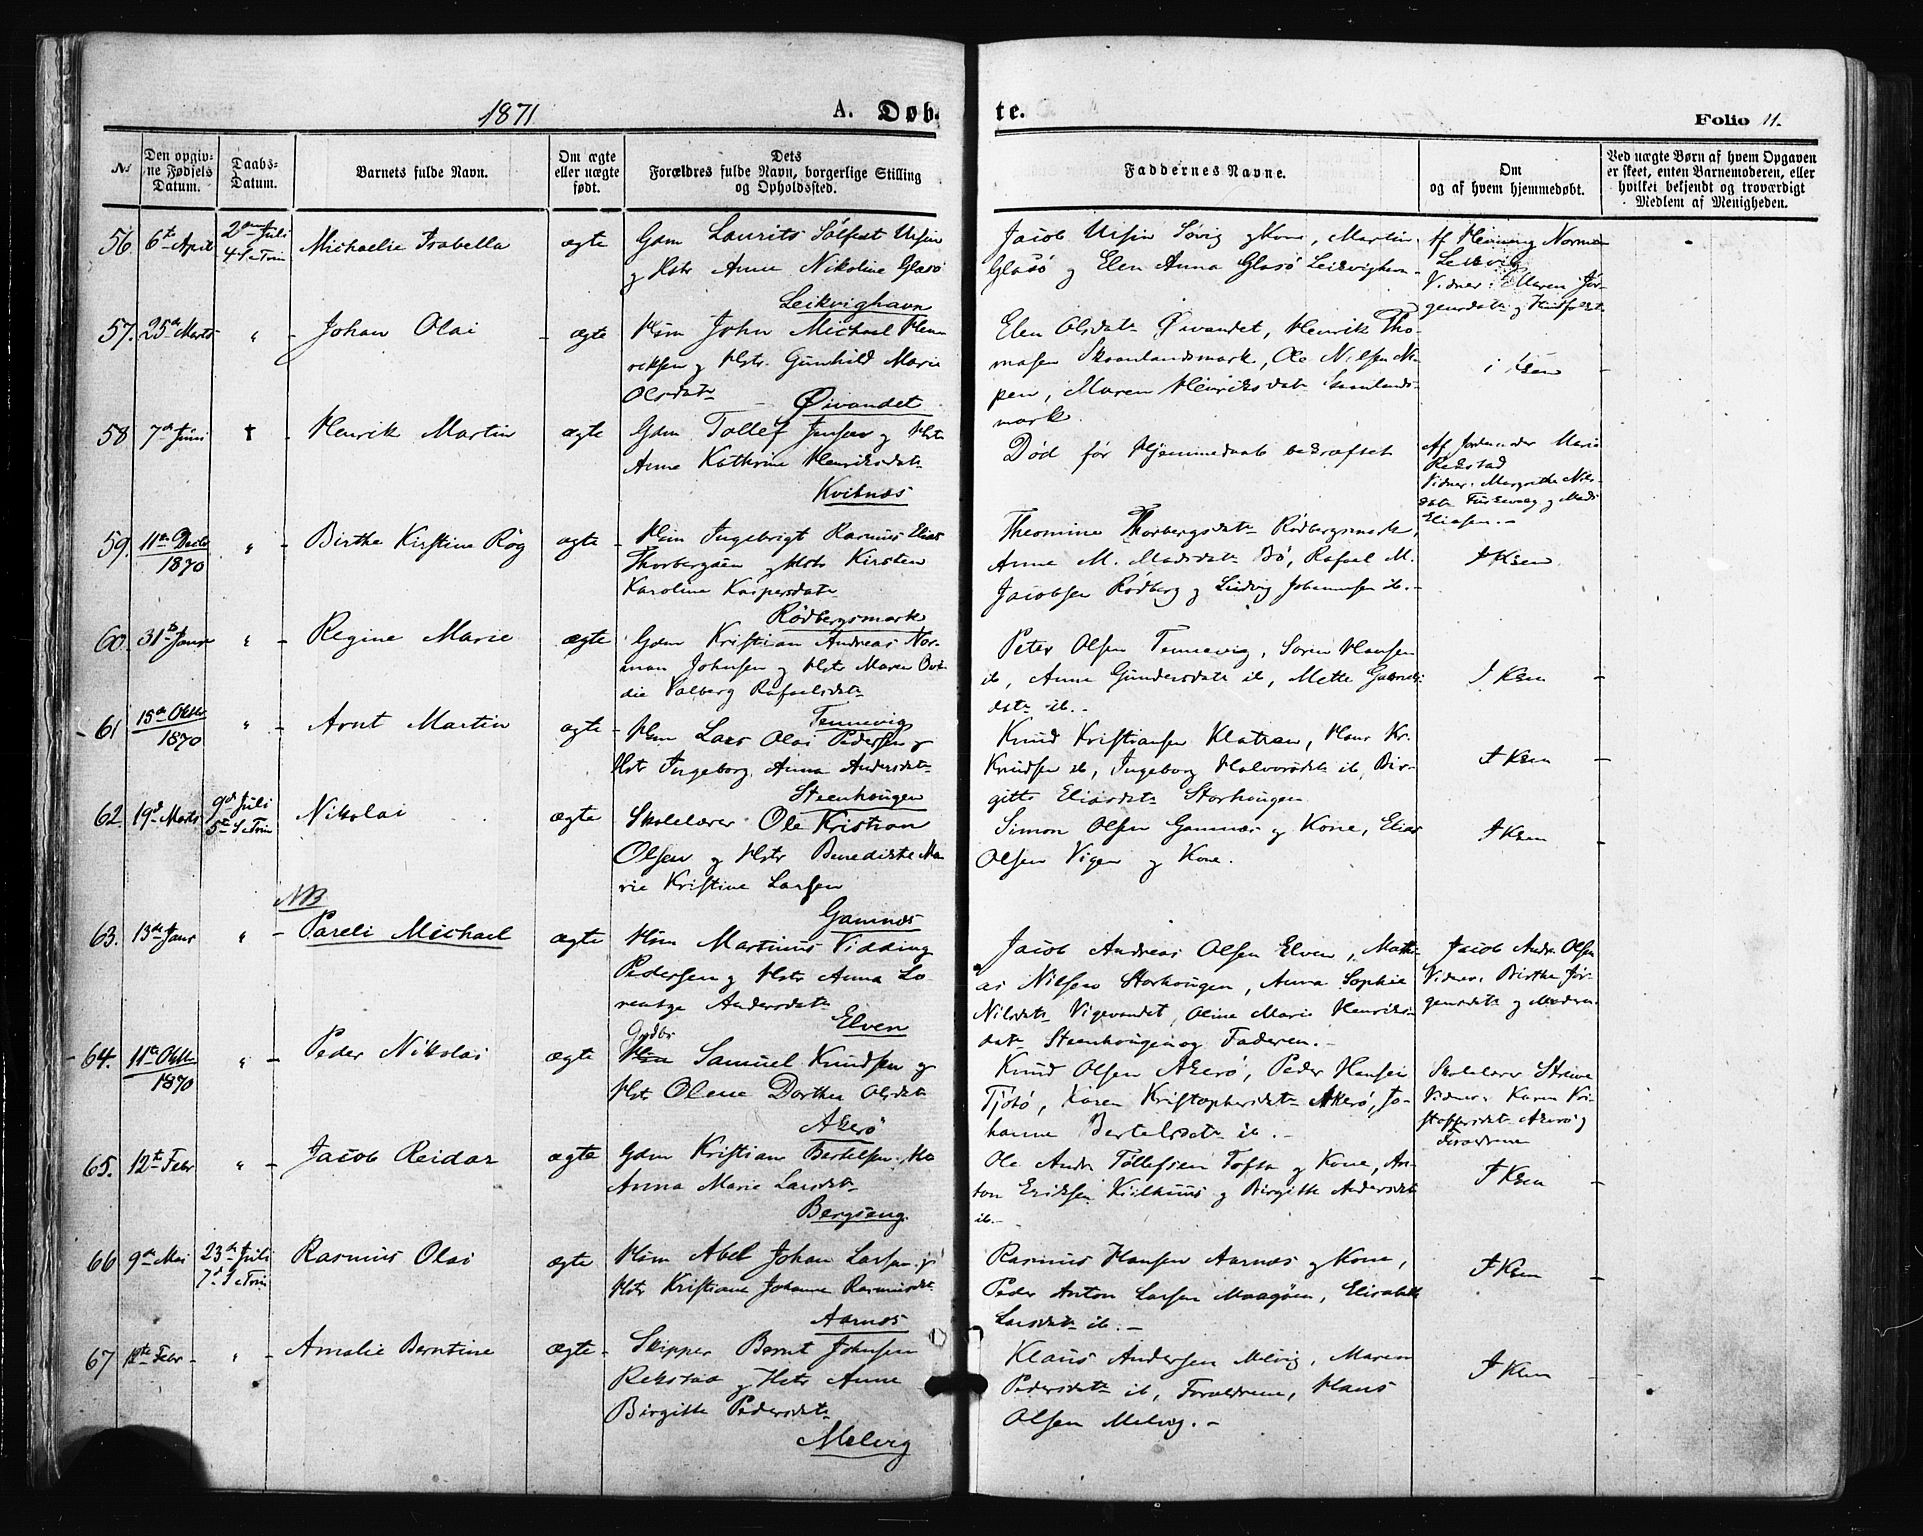 1871
A. Døb-
te.
Folio 11.
No
Den opgiv-
ne Fødsels
Datum.
Daabs-
Datum.
Barnets fulde Navn.
Om ægte
eller uægte
født.
Dets
Forældres fulde Navn, borgerlige Stilling
og Opholdssted.
Faddernes Navne.
Om
og af hvem hjemmedøbt.
Ved uægte Børn af hvem Opgaven
er skeet, enten Barnemoderen, eller
hvilket bekjendt og troværdigt
Medlem af Menigheden.
56. 6te April 2den Juli Michaelie Isabella ægte Gdm Laurits Sölfest Ursin
4 S e Trin
og Hstr Anne Nikoline Glasö
Leikvighavn
Jacob Ursin Søvig og Kone, Martin
Glasö og Elen Anna Glasö Leikvighavn
Af Henning Norman
Leikvig
Vidner: Maren Jør-
gensdatr og
57. 25de Marts " Johan Olai ægte Hsm John Michael Hen-
riksen og Hstr. Gunhild Marie
Olsdatr Øivandet
Elen Olsdatr Øivandet, Henrik Tho-
masen Skomlandsmark, Ole Nilsen
pen, Maren Henriksdatr
mark
i Ksen
58 7de Juni † Henrik Martin ægte Gdm Tollef Jensen og Hstr
Anne Kathrine Henriksdatr
Kvitnæs
Død før Hjemmedaab bekræftet
Af Jordemoder Marie
Rekstad
Vidner: Margrethe Nils-
datr og Mads
Eliasen.
59. 11te Decbr " Birthe Kirstine Røg ægte Hsm Ingebrigt Rasmus Elias
1870
Thorbergsen og Hstr Kirsten
Karoline Kaspersdatr
Rødbergsmark
Theomine Thorbergsdatr Rødbergsmark,
Anne M. Madsdatr Bö, Rafael M.
Jacobsen Rødberg og Ludvig Johannesen ib.
I Ksen
60. 31te Janr " Regine Marie ægte Gdm Kristian Andreas Nor-
man Johnsen og Hstr Maren
die Valberg Rafaelsdatr
Tennevig
Peter Olsen Tennevig, Søren Hansen
ib, Anne Gundersdatr ib, Mette
datr ib.
I Ksen
61 15de Oktbr " Arnt Martin ægte Hsm Lars Olai Pedersen og
1870
Hstr Ingeborg Anna Andersdatr
Steenhougen
Knud Kristiansen Klatran, Hans Kr.
Knudsen ib, Ingeborg Halvorsdatr ib, Bir-
gitte Eliasdatr Storhougen
I Ksen
62. 19de Marts 9de Juli Nikolai ægte Skolelærer Ole Kristian
5te S e Trin
Olsen og Hstr Benedikte Ma-
rie Kristine Larsen
Gamnæs
Simon Olsen Gamnæs og Kone, Elias
Olsen Vigen og Kone.
I Ksen
NB
63. 13de Janr " Pareli Michael ægte Hsm Martinus Vidding
Pedersen og Hstr Anna Lo-
rentze Andersdatr
Elven
Jacob Andreas Olsen Elven, Mathi-
as Nilsen Storhougen, Anna Sophie
Nilsdatr Vigevandet, Oline Marie Henriks-
datr Steenhougen og Faderen.
Jacob Andr. Olsen
Vidner: Birthe Jør-
gensdatr og Moderen
64. 11te Oktbr " Peder Nikolai ægte Grdbr Samuel Knudsen og
1870
Hstr Olene Dorthea Olsdatr
Akerö
Knud Olsen Akerö, Peder Hansen
Tjötö, Karen Kristophersdatr Akerö, Jo-
hanne Bertelsdatr ib.
Skolelærer Streive
Vidner: Karen Kri-
stoffersdatr Akerö og
Forældrene
65. 12te Febr " Jacob Reidar ægte Gdm Kristian Bertelsen
Anna Marie Larsdatr
Bergseng.
Ole Andr. Tollefsen Tofta og Kone, An-
ton Eriksen Kulhuus og Birgitte Andersdatr
ib.
I Ksen
66 9de Mai 23de Juli Rasmus Olai ægte Hsm Abel Johan Larsen og
7de S e Trin
Hstr Kristiane Johanne Rasmusdatr
Aarnæs
Rasmus Hansen Aarnæs og Kone,
Peder Anton Larsen Maagöen, Elisabeth
Larsdatr ib.
I Ksen
67 12te Febr " Amalie Berntine ægte Skipper Bernt Johnsen
Rekstad og Hstr Anne
Birgitte Pedersdatr
Melvig
Klaus Andersen Melvig, Maren
Pedersdatr ib, Forældrene, Hans
Olsen Melvig.
I Ksen